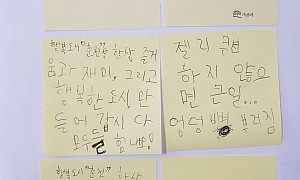 행복도시 "춘천"은 항상 즐거
움과 재미, 그리고
행복한 도시 만
들어 갑시다
모두들 힘내요!
젤리
하지 않으
면 큰일...
엉덩 빵 뽀개짐
행복도시 "춘천" 항상